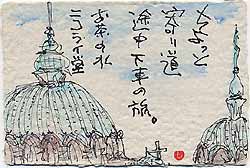 ちょっと
寄り道
途中下車の旅。
お茶の水
ニコライ堂